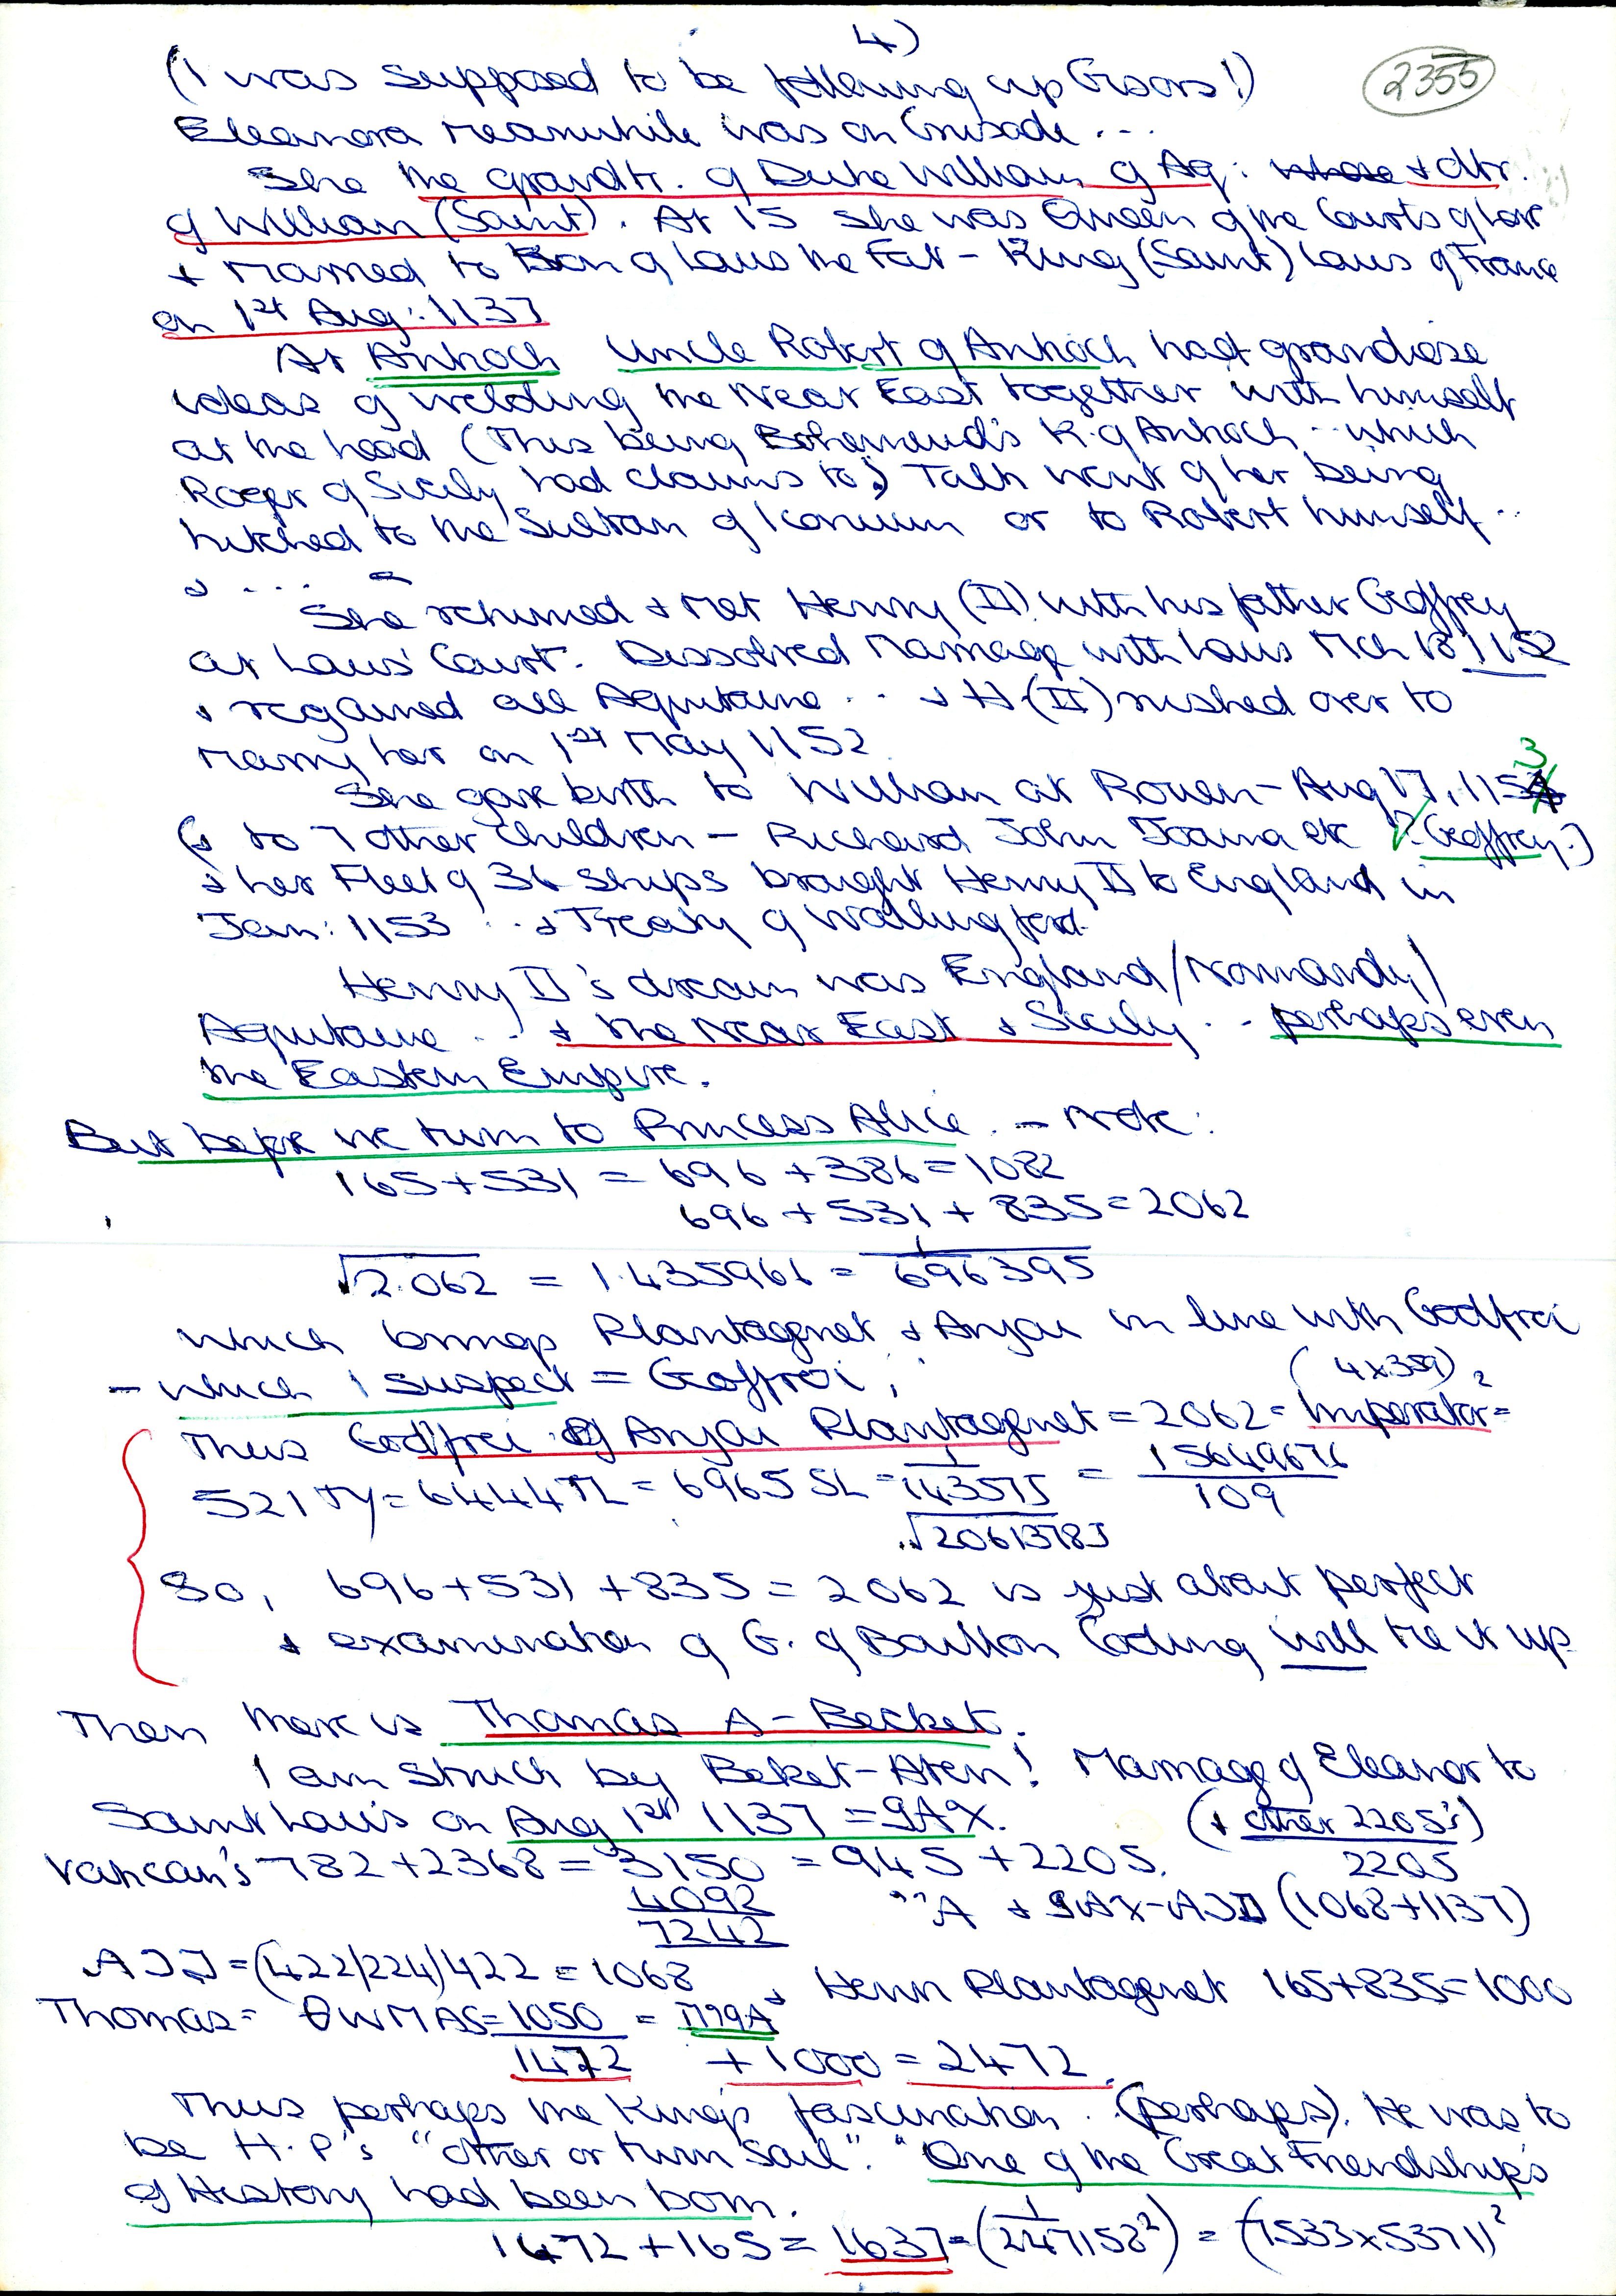 4)
2355
(I was supposed to be following up Gisors!)
Eleanora meanwhile was on Crusade ...
She the grandtr. of Duke William of Aq: whose + dtr.
of William (Saint). At 15 she was Queen of the Courts of Love
+ married to Son of Louis the Fat - King (Saint) Louis of France
on 1st Aug: 1137
At Antioch Uncle Robert of Antioch had grandiose
ideas of welding the Near East together with himself
at the head (This being Bohemund's K. of Antioch .. which
Roger of Sicily had claims to) Talk went of her being
hitched to the Sultan of Iconium or to Robert himself ..
& ...
She returned & met Henry (II) with his father Geoffrey
at Louis' Court. Dissolved Marriage with Louis Mch 18 1152
& regained all Aquitaine .. & H (II) rushed over to
marry her on 1st May 1152
She gave birth to William at Rouen - Aug 17, 1153
(& to 7 other children - Richard John Joana etc ? Geoffrey.)
& her Fleet of 36 ships brought Henry II to England in
Jan: 1153 .. & Treaty of Wallingford.
Henry II's dream was England/Normandy/
Aquitaine ... + the Near East & Sicily .. perhaps even
the Eastern Empire.
But before we turn to Princess Alice. - Note:
165+531 = 696 + 386 = 1082
696 + 531 + 835 = 2062
√2.062 = 1.435961 = 1/696395
which brings Plantagenet & Anjou in line with Godfroi
- which I suspect = Geoffroi;
(4x359)²
Thus Godfrei of Anjou Plantagenet = 2062 = Imperator =
521 TY = 6444 TL = 6965 SL = 1/143575 = 15649676/109
√20613783
So, 696 + 531 + 835 = 2062 is just about perfect
& examination of G. of Bouillon Coding will tie it up.
Then there is Thomas A-Becket.
I am struck by Beket-Aten! Marriage of Eleanor to
Saint Louis on Aug 1st 1137 = 9AX.
(+ other 2205's)
Vatican's 782 + 2368 = 3150 = 945 + 2205.
2205
4092
7242
"A + 9AX-AJJ (1068+1137)
AJJ = (422/224)/422 = 1068
& Henri Plantagenet 165+835=1000
Thomas = θWMAS = 1050
1472 + 1000 = 2472.
Thus perhaps the King's fascination .. (perhaps). He was to
be H.P's "other or turn Soul". "One of the Great Friendships
of History had been born.
1472 + 165 = 1637 = (1/247158²) = (1533x5371)²